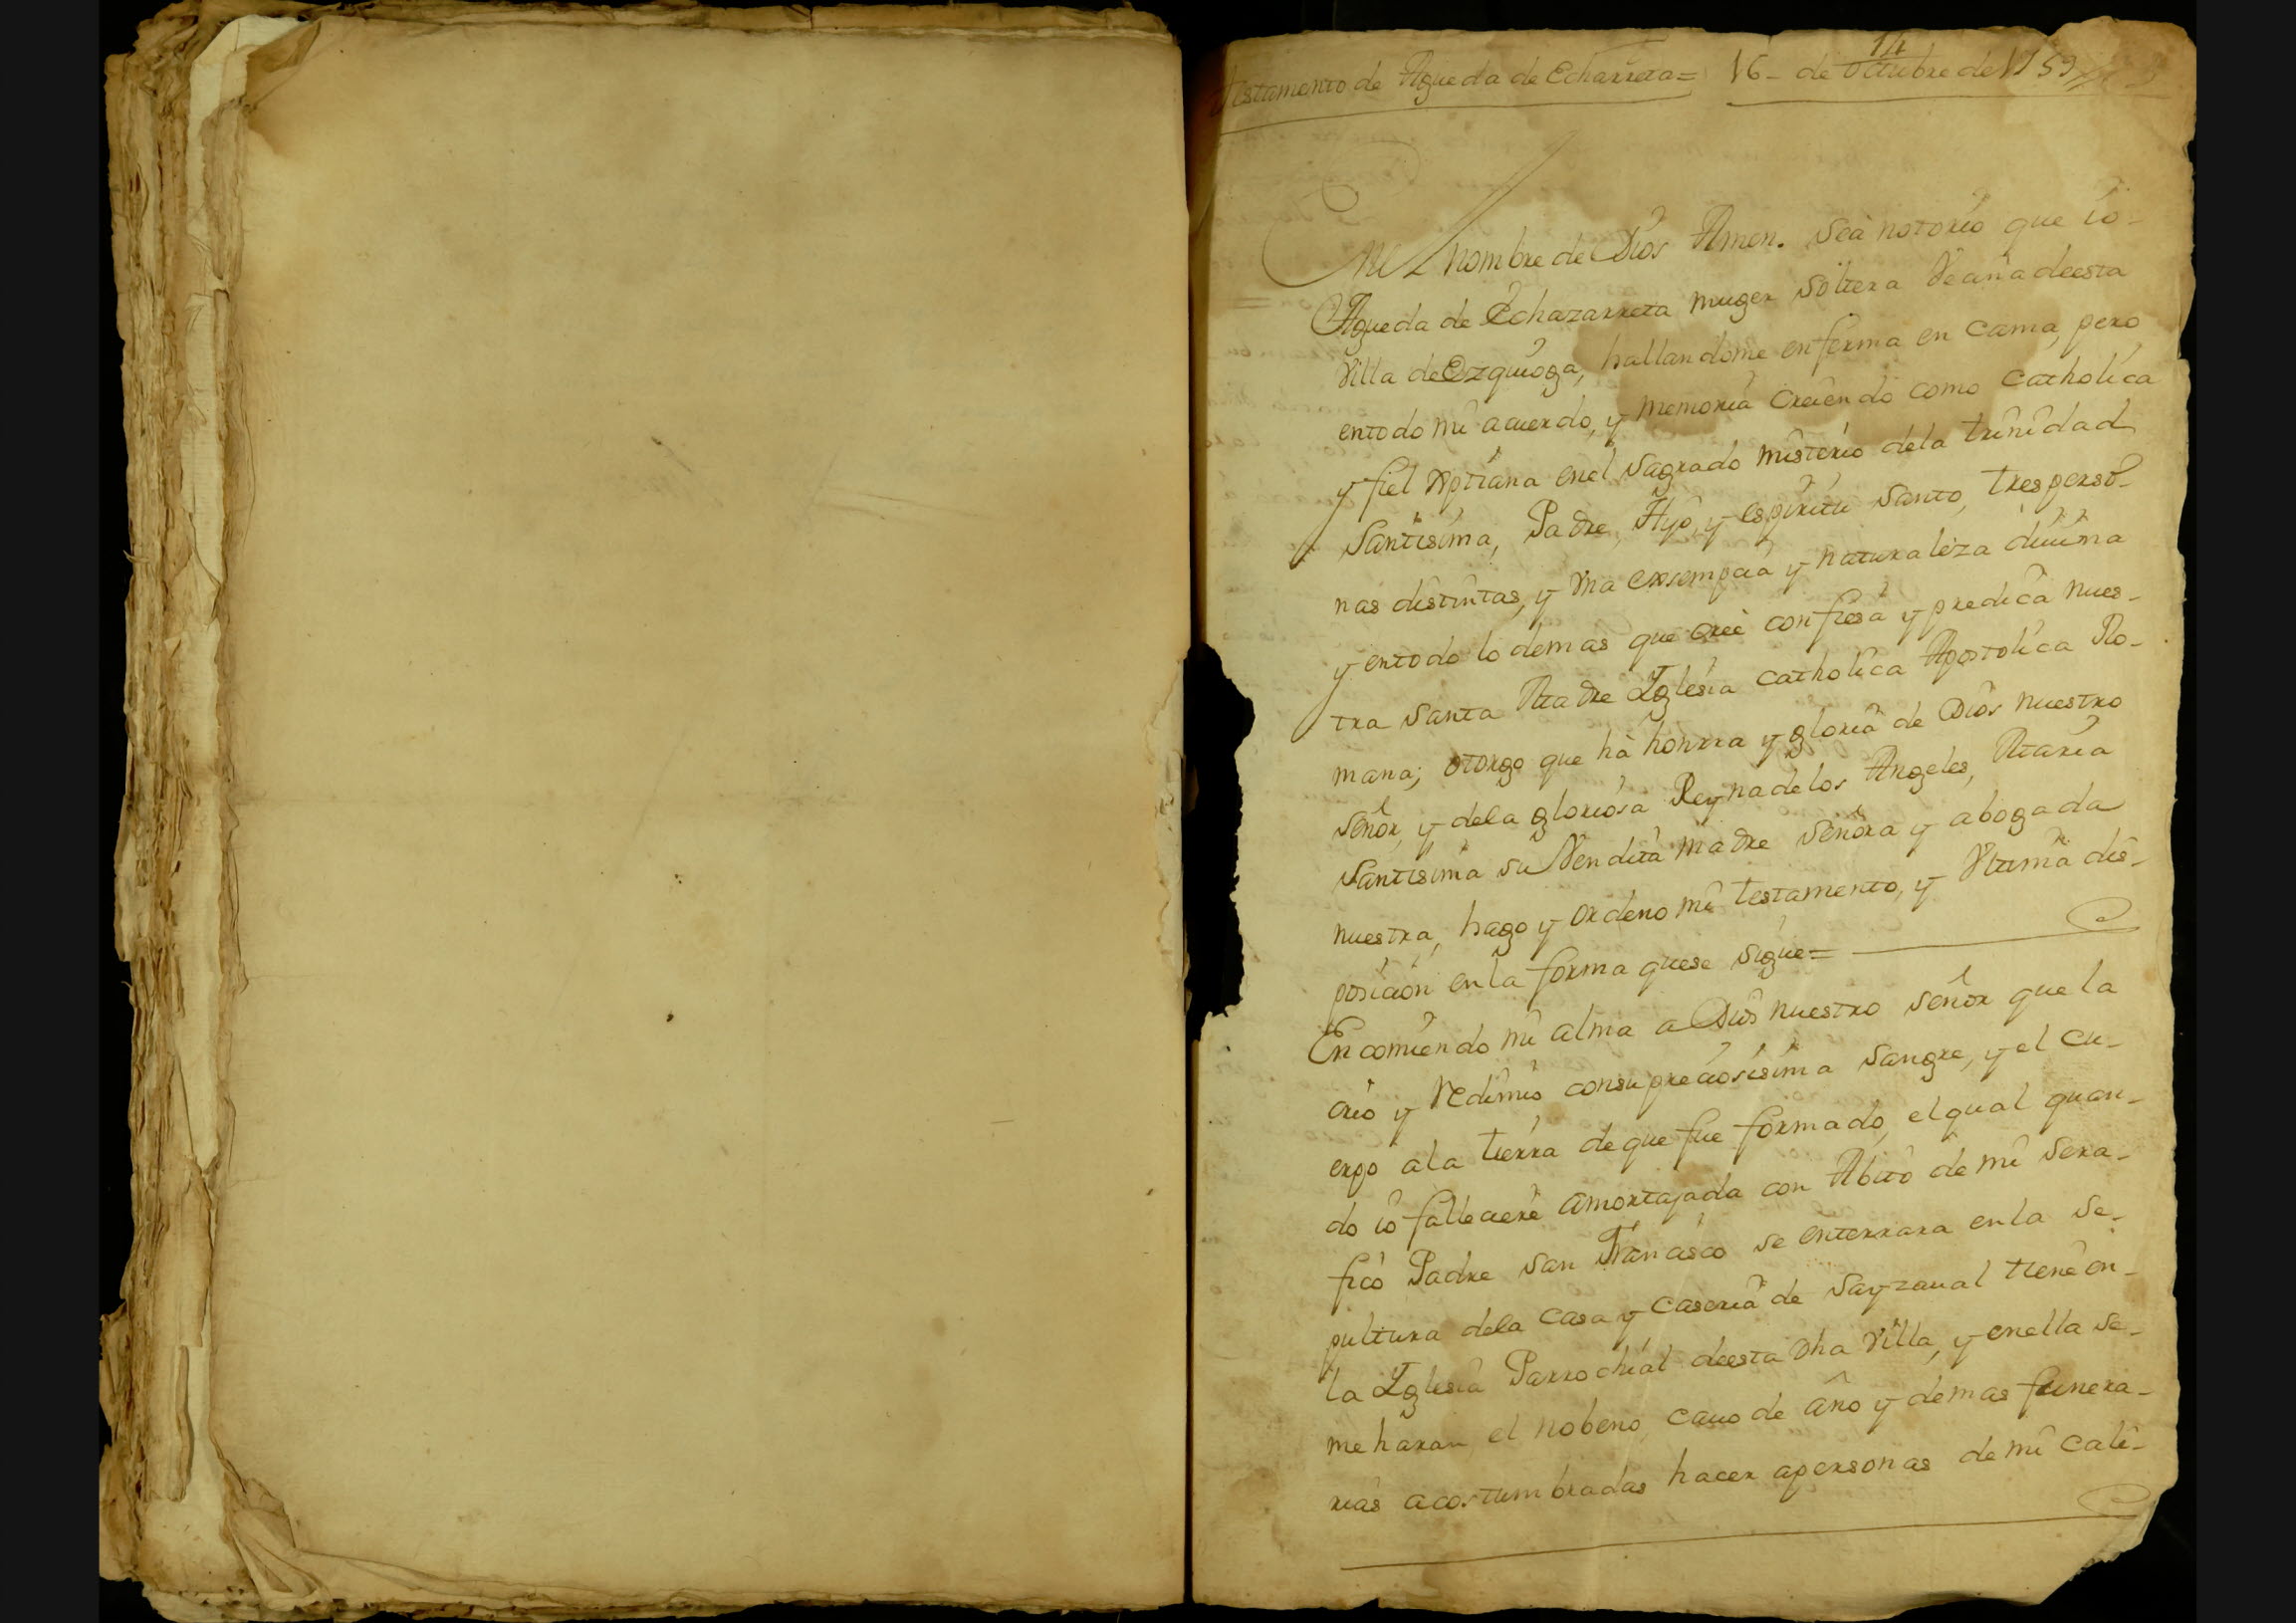 Testamento de Agueda de Echarreta= 16- de Octubre de 1759
14
En el nombre de Dios Amen. Sea notorio que io-
Agueda de Echazarreta muger soltera Veçina deesta
Villa de Ezquioga, hallandome enferma en cama, pero
entodo mi acuerdo, y memoria creiendo como catholica
y fiel Xptiana enel sagrado misterio dela trinidad
Santisima, Padre, Hijo, y espiritu santo, tres perso-
nas distintas, y Vna y naturaleza diuina
y entodo lo demas que cree confiesa y predica nues-
tra Santa Madre Iglesia catholica Apostolica Ro-
mana; otorgo que hà honrra y gloria de Dios nuestro
señor, y dela gloriosa Reyna delos Angeles, Maria
Santisima su Vendita madre señora y abogada
nuestra, hago y ordeno mi testamento, y Vltima dis-
posicion en la forma quese sigue=
Encomiendo mi alma a Dios nuestro señor que la
crio y Redimio consu preciosisima sangre, y el cu-
erpo ala tierra de que fue formado, elqual quan-
do io falleciere amortajada con Abito de mi sera-
fico Padre san Francisco se enterrara en la se-
pultura dela casa y caseria de Sayzaual tiene en-
la Iglesia Parrochial deesta dha Villa, y enella se-
me haran el nobeno, cauo de año y demas funera-
rias acostumbradas hacer apersonas de mi cali-